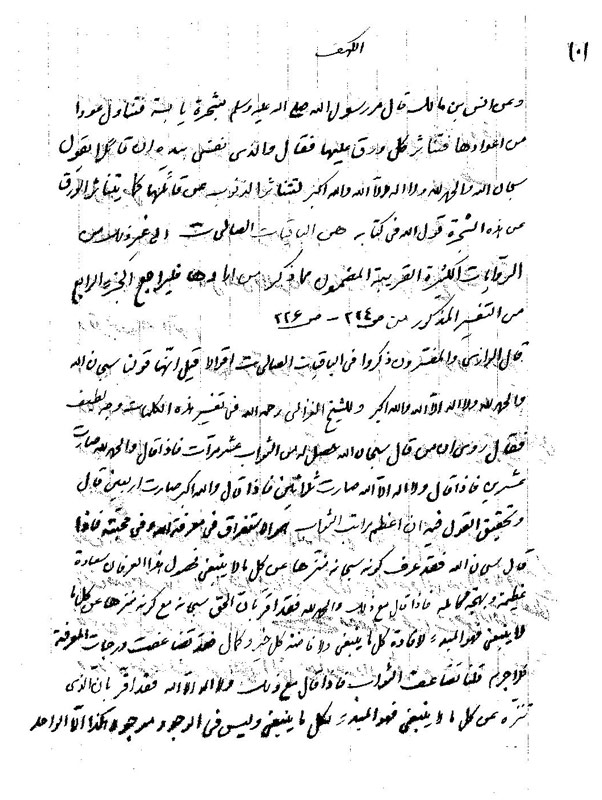 الكهف
(١٠)
وعن انس بن مالك قال مر رسول الله صلى الله عليه وسلم بشجرة يابسة فتناول عودا
من اعوادها فتناثر كل ورق عليها فقال والذي نفسي بيده ان قائلا يقول
سبحان الله والحمد لله ولا اله الا الله والله اكبر لتتناثر الذنوب عن قائلها كما يتناثر الورق
عن هذه الشجرة قول الله في كتابه هن الباقيات الصالحات الى غير ذلك من
الروايات الكثيرة القريبة المضمون مما ذكر فليراجع الجزء الرابع
من التفسير المذكور من ص ٢٢٤ - ص ٢٢٦
قال الرازي والمفسرون ذكروا في الباقيات الصالحات اقوالا قيل انها قولنا سبحان الله
والحمد لله ولا اله الا الله والله اكبر وللشيخ الغزالي رحمه الله في تفسير هذه الكلمات وجه لطيف
فقال روى ان من قال سبحان الله حصل له من الثواب عشر مرات فاذا قال والحمد لله صارت
عشرين فاذا قال ولا اله الا الله صارت ثلاثين فاذا قال والله اكبر صارت اربعين قال
وتحقيق القول فيه ان اعظم مراتب الثواب هو الاستغراق في معرفة الله وفي محبته فاذا
قال سبحان الله فقد عرف كونه سبحانه منزها عن كل ما لا ينبغي فحصول هذا العرفان سعادة
عظيمة وبهجة كاملة فاذا قال مع ذلك والحمد لله فقد اقر بان الحق سبحانه مع كونه منزها عن كل ما
لا ينبغي فهو المبدء لافادة كل ما ينبغي ولافاضة كل خير وكمال فقد تضاعفت درجات المعرفة
فلا جرم قلنا تضاعف الثواب فاذا قال مع ذلك ولا اله الا الله فقد اقر بان الذي
تنزه عن كل ما لا ينبغي فهو المبدء لكل ما ينبغي وليس في الوجود موجود هكذا الا الواحد